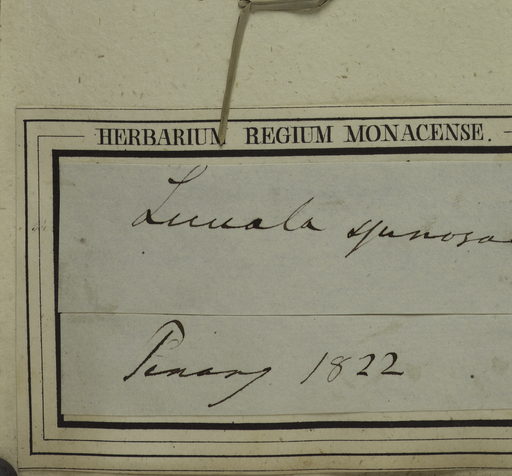 HERBARIUM REGIUM MONACENSE.
spinosa
Penang 1822